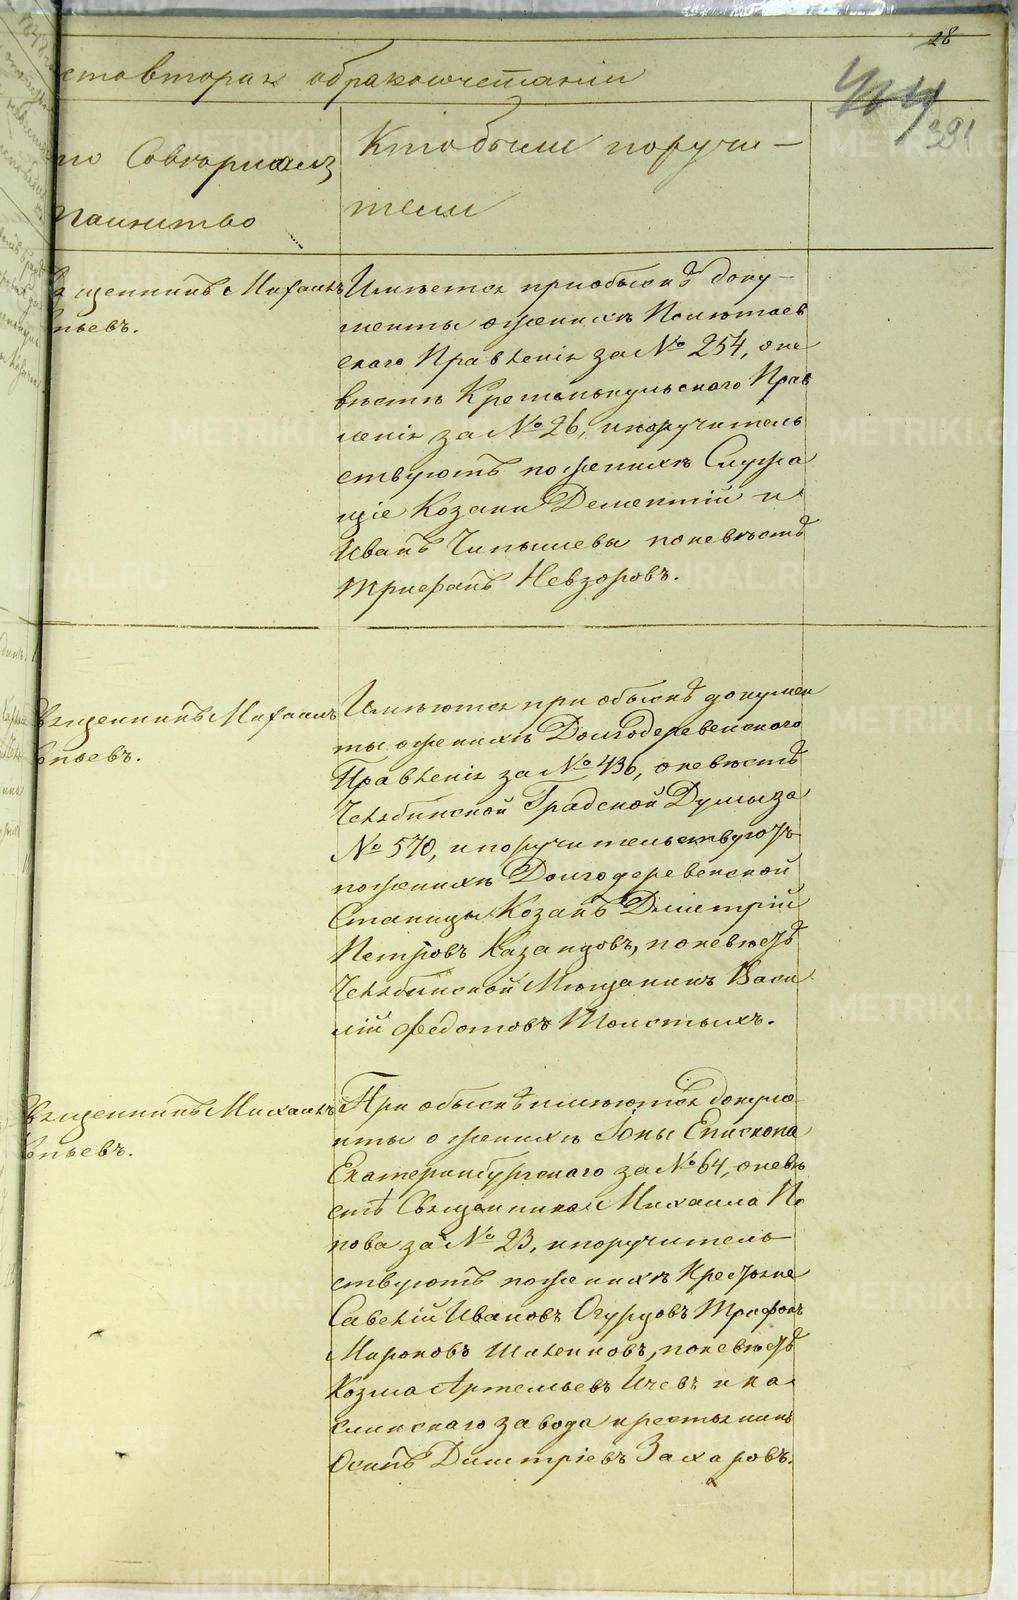 28
сть вторая о бракосочетаніи
391
то Совершалъ
таинство
Кто были поручи-
тели
щенникъ Михаилъ
пьевъ.
Имѣются при обыскѣ доку-
менты о женихѣ Полѣтаев
скаго Правленія за № 254, о не
вѣстѣ Кременкульскаго Прав
ленія за № 26, и поручитель
ствуютъ по женихѣ Служа
щіе Козаки Дементій и
Иванъ Чипышевы по невѣстѣ
Трифанъ Невзоровъ.
вященникъ Михаилъ
пьевъ.
Имѣются при обыскѣ докумен
ты о женихѣ Долгодеревенскаго
Правленія за № 430, о невѣстѣ
Челябинской Градской Думы за
№ 570, и поручительствуютъ
по женихѣ Долгодеревенской
Станицы Козакъ Дмитрій
Петровъ Казанцовъ, по невѣстѣ
Челябинской Мѣщанинъ Васи
лій Федотовъ Толстыхъ.
вященникъ Михаилъ
пьевъ.
При обыскѣ имѣются докуме
нты о женихѣ Іоны Епископа
Екатеринбургскаго за № 64, о невѣ
стѣ Священника Михаила По
пова за № 23, и поручитель
ствуютъ по женихѣ Крестьяне
Савелій Ивановъ Огурцовъ Трифонъ
Мироновъ Шаленковъ, по невѣстѣ
Козма Артемьевъ Ичевъ и ка
слинскаго завода крестьянинъ
Осипъ Дмитріевъ Захаровъ.
METRIKI.GASO-URAL.RU